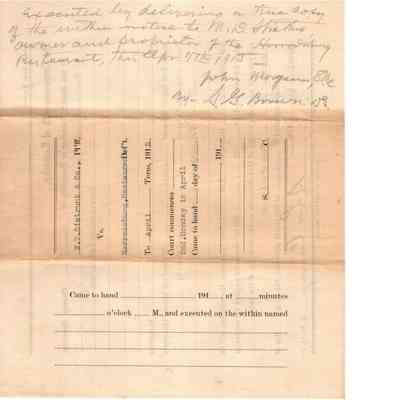 Executed by delivering a true copy
of the within notice to M. G.
owner and proprietor of the
Restaurant, this Apr 7th 1915
John Morgan,
By S. G. Brown
& Co., 191
Vs.
Restaurant Def't.
To April Term, 191
Court commences
2nd. Monday in April
Came to hand day of
191
S. C.
Came to hand 191 , at minutes
o'clock M., and executed on the within named